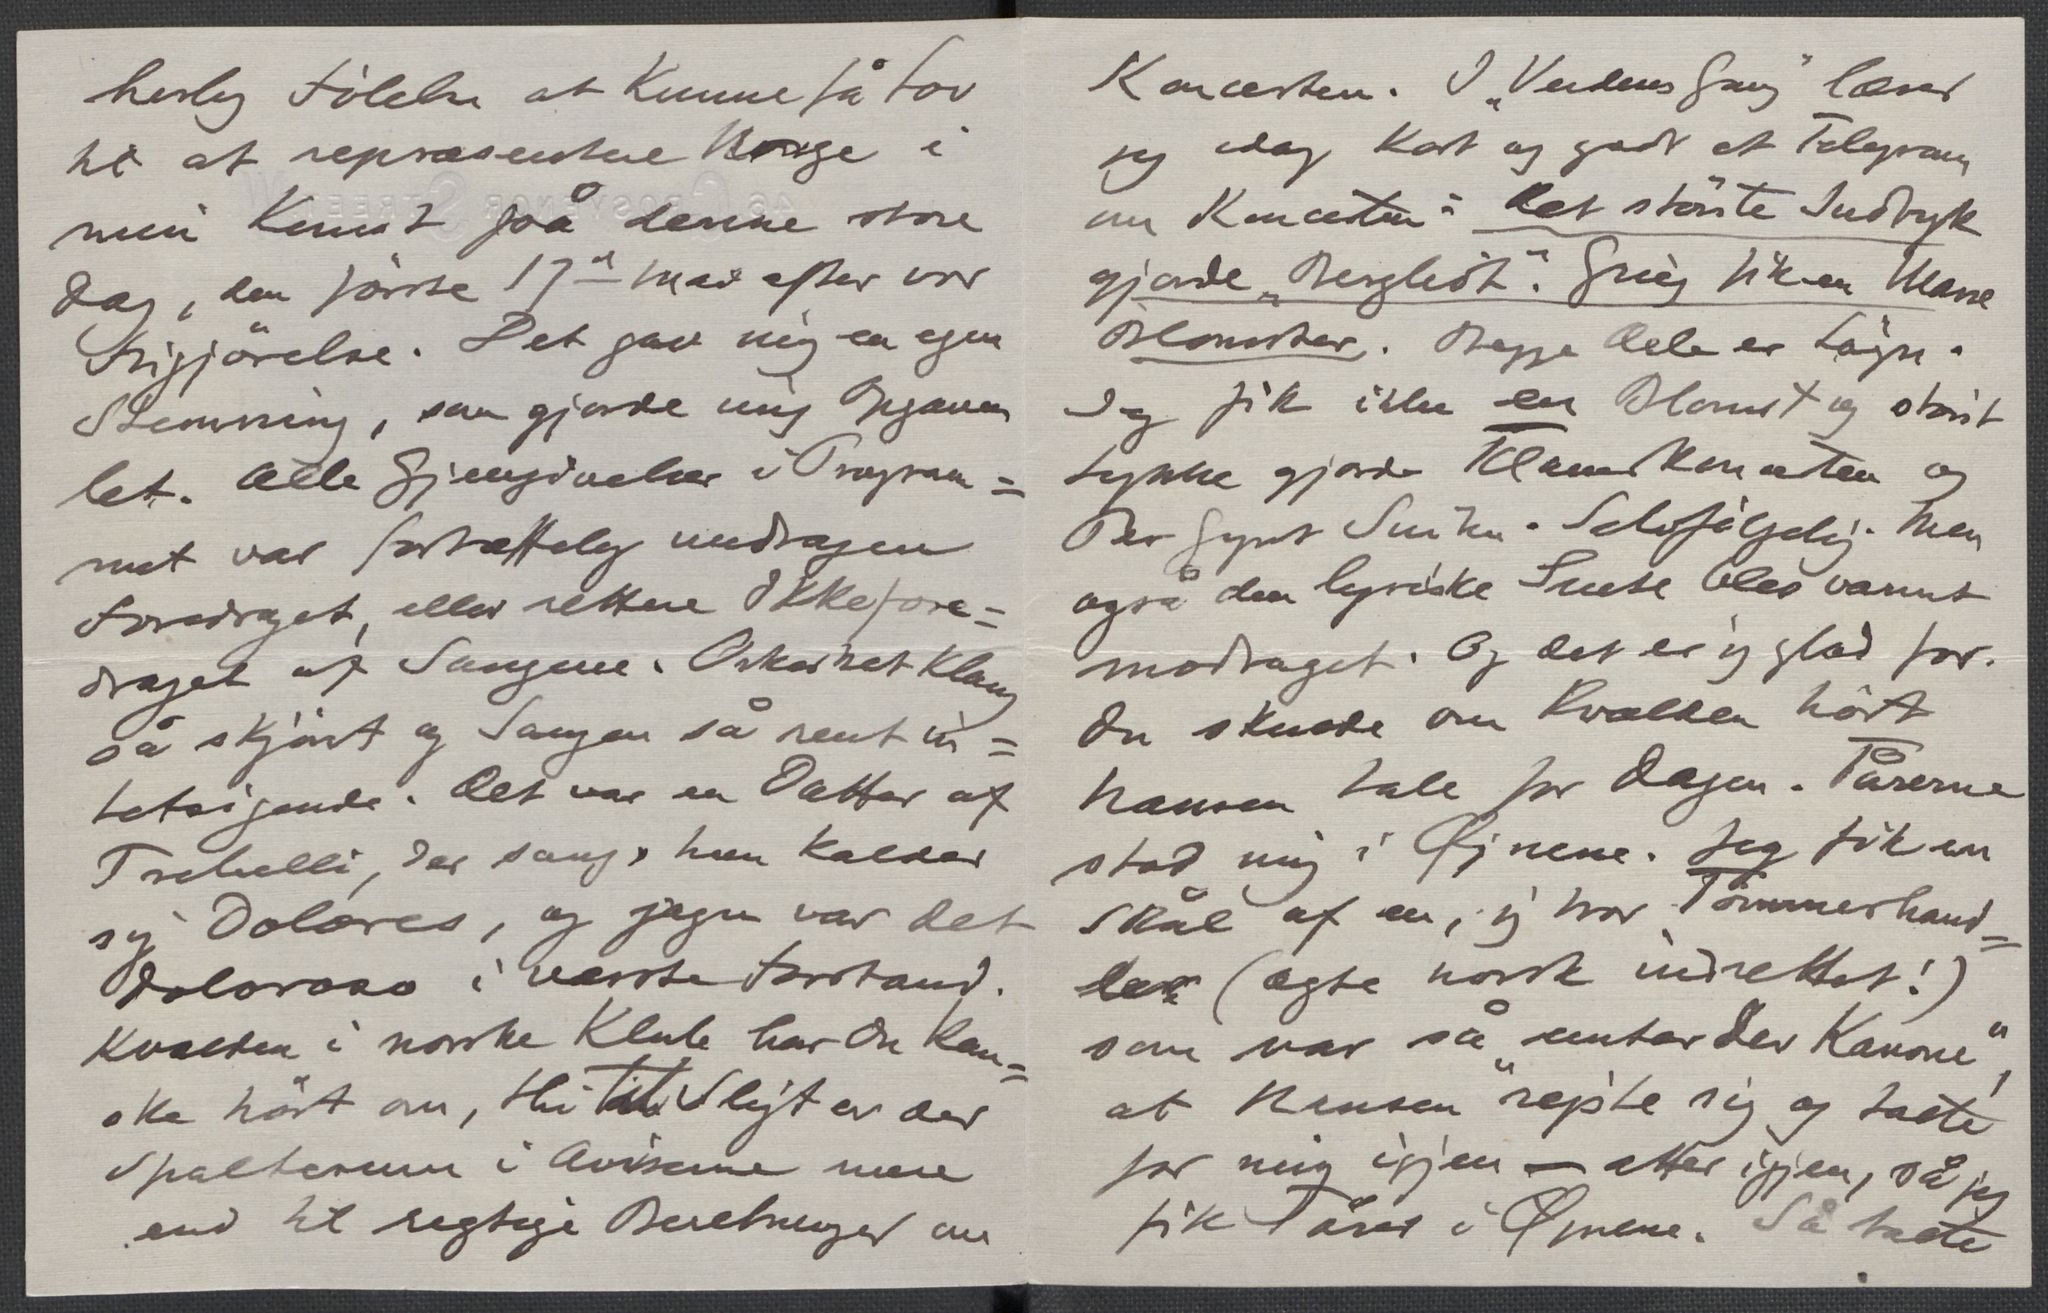 herlig Følelse at kunne få Lov
til at repræsentere Norge i
min Kunst på denne store
Dag, den første 17de Mai efter vor
Frigjörelse. Det gav mig en egen
Stemning, som gjorde mig Opgaven
let. Alle Gjengivelser i Program=
met var fortræffelig undtagen
Foredraget, eller rettere Ikkefore=
draget af Sangene. Orkestret klang
så skjönt og Sangen så rent in=
tetsigende. Det var en Datter af
Trebelli, der sang, hun kalder
sig Dolores, og jagu var det
doloroso i værste Forstand.
Kvælden i norske Klub har Du kan=
ske hört om, thi til Sligt er der
Spalterum i Aviserne mere
end til rigtige Beretninger om
46 GROSVENOR STREET W
Koncerten. I „Verdens Gang" læser
jeg idag kort og godt et Telegram
om Koncerten: Det störste Indtryk
gjorde „Bergliot". Grieg fik en Masse
Blomster. Begge Dele er Lögn.
Jeg fik ikke en Blomst og störst
Lykke gjorde Klaverkoncerten og
Peer Gynt Suiten. Selvfölgelig. Men
også den lyriske Suite blev varmt
modtaget. Og det er jeg glad for.
Du skulde om Kvælden hört
Nansen tale for Dagen. Tårerne
stod mig i Øjnene. Jeg fik en
Skål af en, jeg tror Tömmerhand=
ler (ægte norsk indrettet!)
som var så „unter der Kanone",
at Nansen rejste sig og talte
for mig igjen – atter igjen, så jeg
fik Tårer i Øjnene. Så talte